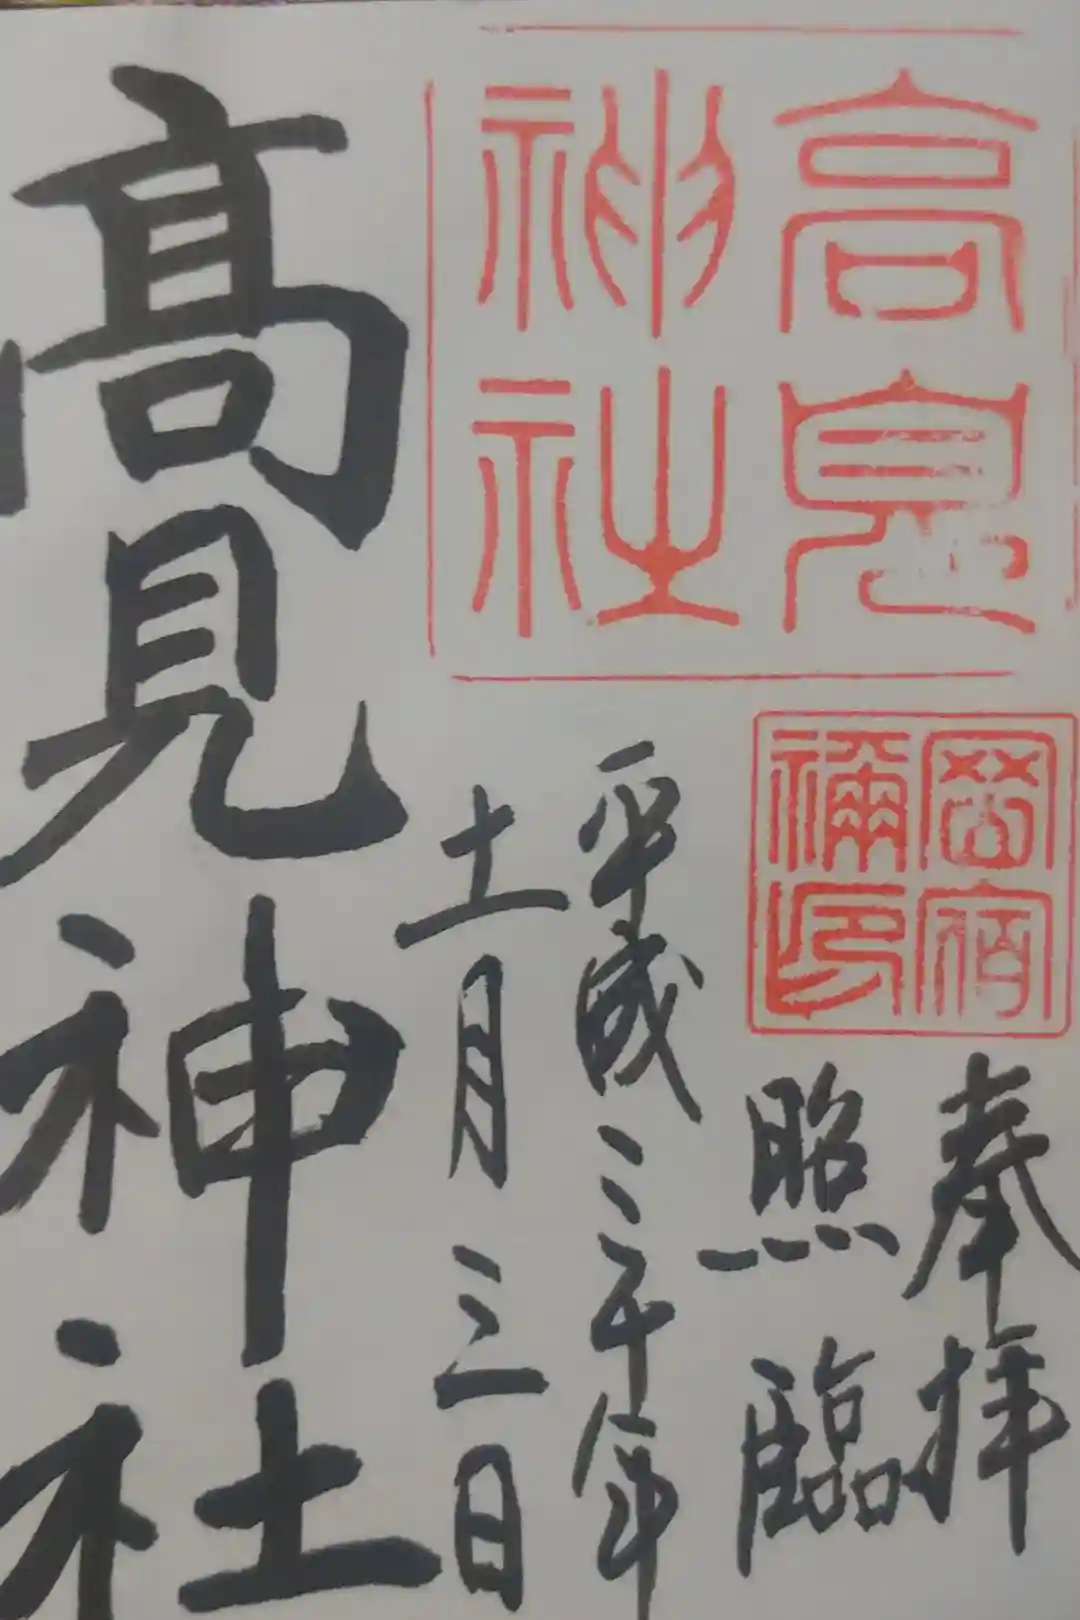 高見
神社
宿
禰印
奉拝
照臨
平成三十年
十一月三日
髙見神社